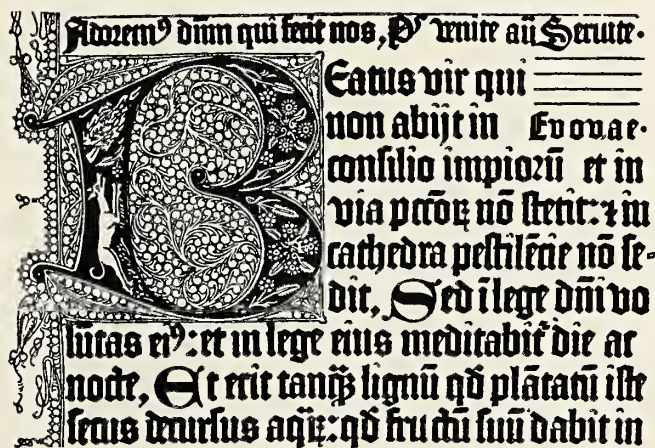 Adoremꝰ dūm qui fecit nos, Pꝰ venite aū Seruite·
Beatus vir qui
non abijt in Euouae·
consilio impioꝝū et in
via pctōꝝ nō stetit: ⁊ in
cathedra pestilētie nō se-
dit, Sed ī lege dn̄i vo
lūtas eiꝰ: et in lege eius meditabit᷑ die ac
nocte, Et erit tanq̄ꝫ lignū qd̄ plātatū iste
secus decursus aqꝝ: qd̄ fructū suū dabit in